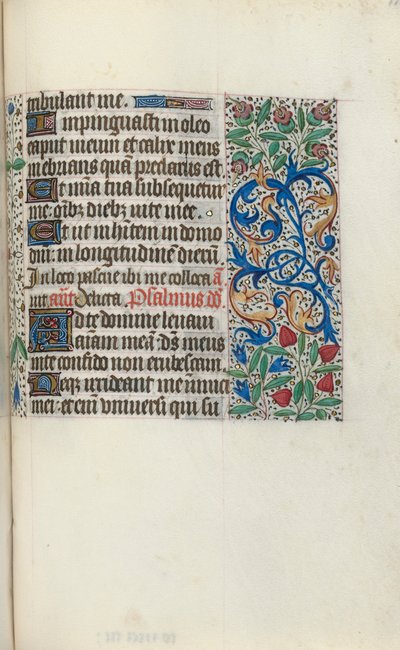 tribulant me.
Impinguasti in oleo
caput meum et calix meus
inebrians quã preclarus est.
Et mia tua subsequetur
me: oĩbꝫ diebꝫ vite mee.
Et ut inhitem in domo
dñi: in longitudinẽ dierũ.
In loco pascue ibi me colloca
uit añt Delicta. Psalmus dd
Ad te domine leuaui
aĩam meã: ds meus
in te confido non erubescam.
Neqꝫ irrideant me inimici
mei: et eñi vniuersi qui su